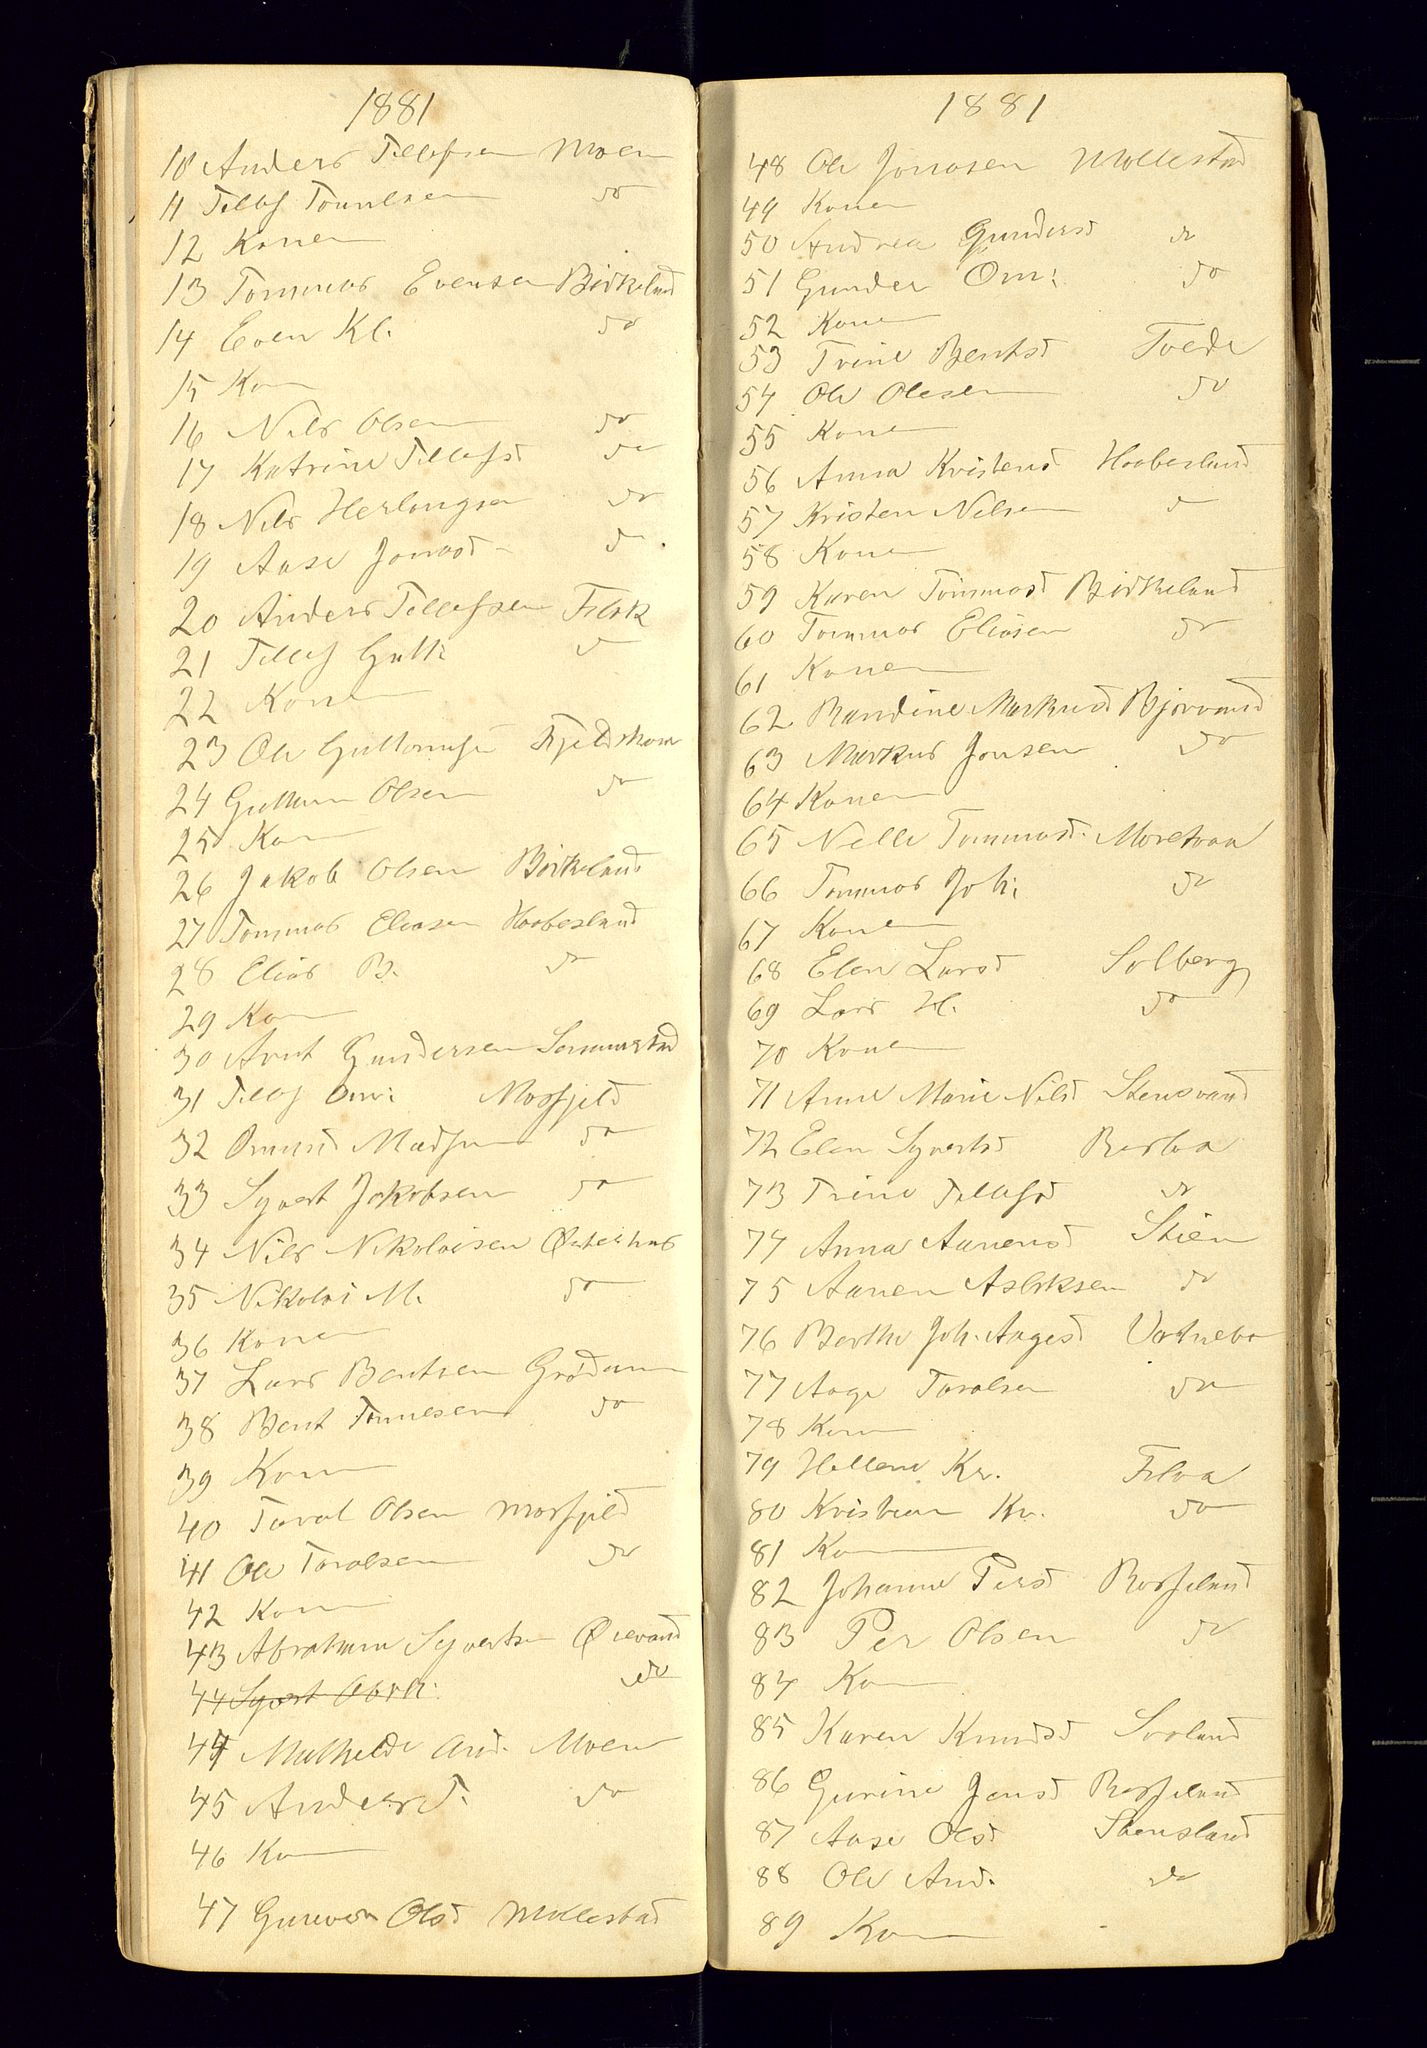 1881
10 Anders Tellefsen Moen
11 Tellef Tomelsen do
12 Konen
13 Tommas Evensen Birkeland
14 Even Kl. do
15 Kon
16 Nils Olsen do
17 Katrine Tellefsd do
18 Nils Herlougsen do
19 Aase Jonasd do
20 Anders Tellefsen Flak
21 Tellef Gutt: do
22 Konen
23 Ole Guttormsen Fjeldskaar
24 Guttorm Olsen do
25 Kon
26 Jakob Olsen Birkeland
27 Tommas Eliasen Haabesland
28 Elias B. do
29 Kon
30 Arnt Gundersen
31 Tellef Om: Mosfjeld
32 Omund Madsen do
33 Syvert Jakobsen do
34 Nils Nikolaisen Østerhus
35 Nikolai M. do
36 Konen
37 Lars Bentsen Grødum
38 Bent Tomesen do
39 Kon
40 Taral Olsen Mosfjeld
41 Ole Taralsen do
42 Kon
43 Abraham Syvertsen Øievand
44 Syvert Abrh: do
44 Mathilde And. Moen
45 Anders T. do
46 Kon
47 Olsd Mollestad
1881
48 Ole Jonasen Mollestad
49 Konen
50 Andrea Gundersd do
51 Gunder Om: do
52 Konen
53 Trine Bentsd Tvede
54 Ole Olesen do
55 Konen
56 Anna Kristensd Haabesland
57 Kristen Nilsen do
58 Konen
59 Karen Tommasd Birkeland
60 Tommas Eliasen do
61 Konen
62 Randine Markusd Bjorvand
63 Markus Jonsen do
64 Konen
65 Nelle Tommasd. Moretraa
66 Tommas Joh: do
67 Konen
68 Elen Larsd Solberg
69 Lars H. do
70 Konen
71 Anne Marie Nilsd Stensvand
72 Elen Syvertsd Berboa
73 Trine Tellefsd do
74 Anna Aanensd Stien
75 Aanen Aslaksen do
76 Berthe Joh. Aagesd Vatnebo
77 Aage Taralsen do
78 Kon
79 Hellene Kr. Flaa
80 Kristian Kr. do
81 Kon
82 Johanne Persd Rosseland
83 Per Olsen do
84 Kon
85 Karen Knudsd Svaland
86 Gurine Jensd Rosseland
87 Aase Olsd Stensland
88 Ole And. do
89 Kon